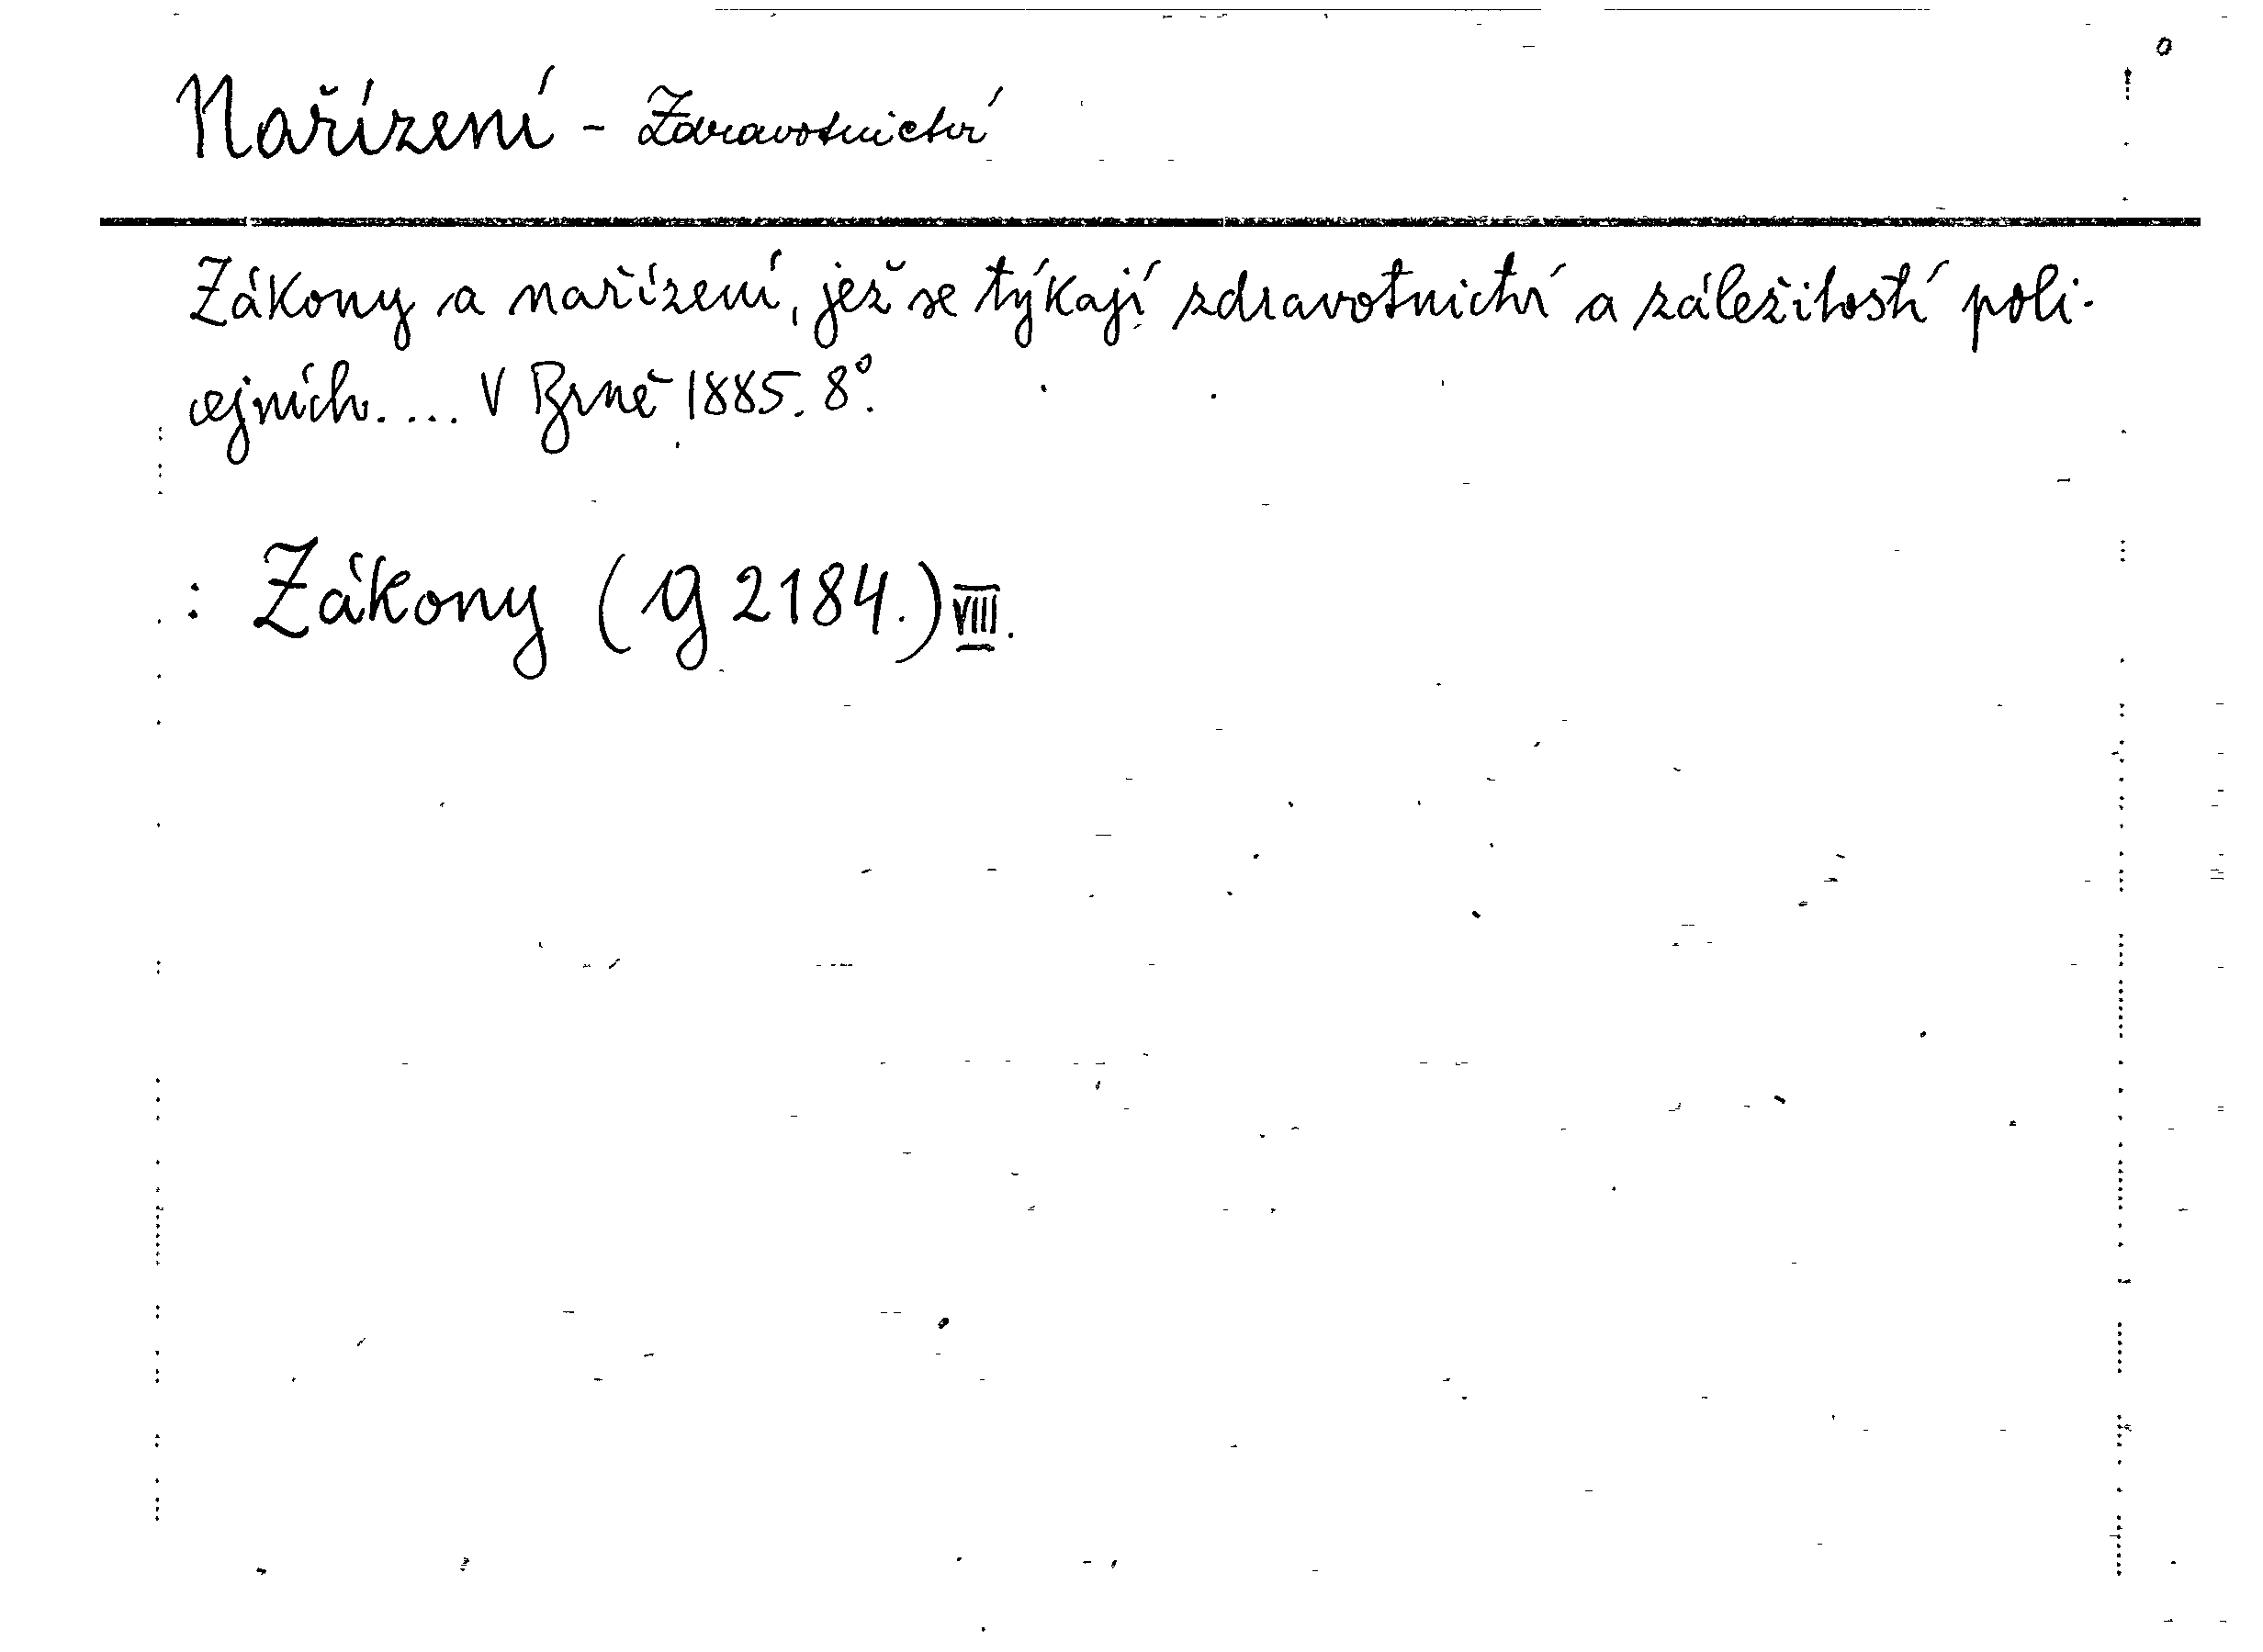 Nařízení - Zdravotnictví
Zákony a nařízení, jež se týkají zdravotnictví a záležitostí poli-
cejních.... V Brně 1885. 8°.
: Zákony (G 2184.) VIII.